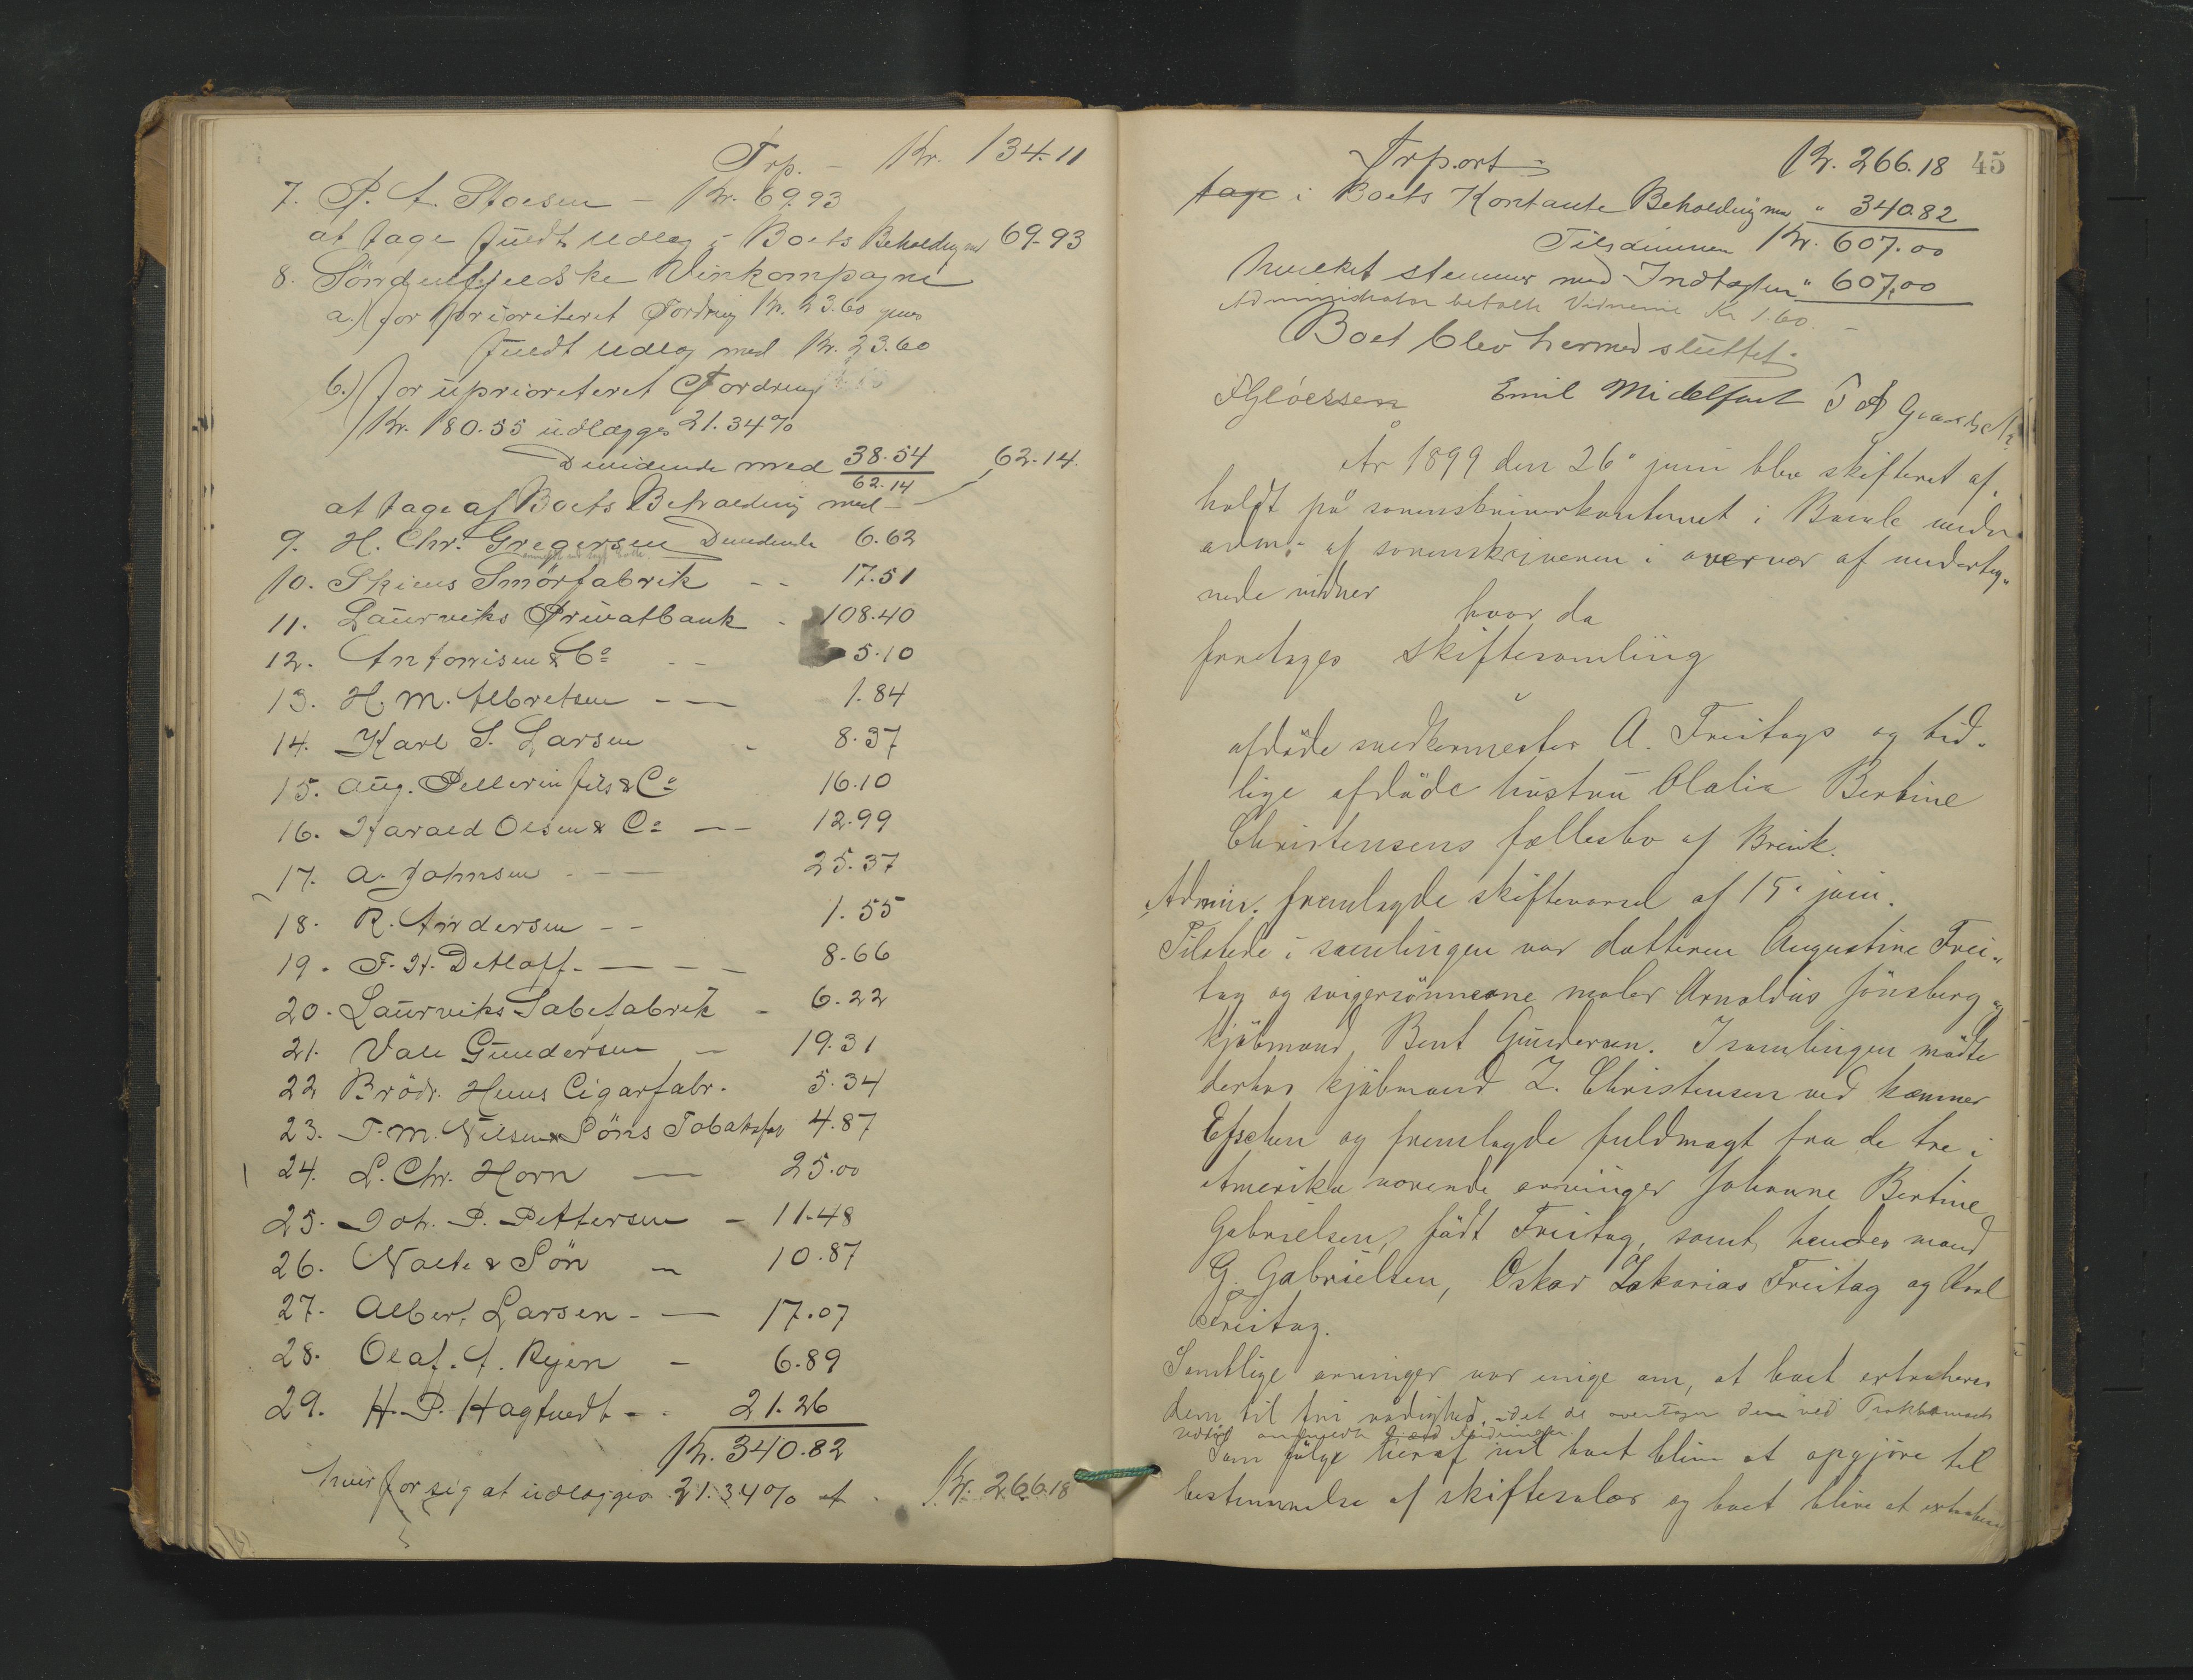 Trp. - Kr. 134.11
7. P. A. Stoesen - Kr. 69.93
at tage fuldt Udlæg i Boets Beholdng md 69.93
8. Söndenfjeldske Vinkompagni
a.) for prioriteret Fordring Kr. 23.60 gives
fuldt Udlæg med Kr. 23.60
b.) for uprioriteret Fordring
Kr. 180.55 udlægges 21.34%
Dividende med 38.54 62.14.
62.14
at tage af Boets Beholdning med -
9. H. Chr. Gregersen Dividende 6.62
10. Skiens Smörfabrik - - 17.51
11. Laurviks Privatbank - 108.40
12. Antonisen & Co - - 5.10
13. H. M. Albretsen - - 1.84
14. Karl S. Larsen - 8.37
15. Aug. Pellerin fils & Co 16.10
16. Harald Olsen & Co - - 12.99
17. A. Johnsen - - 25.37
18. R. Andersen - - 1.55
19. F. H. Detloff - - - - 8.66
20. Laurviks Sæbefabrik - 6.22
21. Vale Gundersen - 19.31
22 Brödr. Huus Cigarfabr. 5.34
23. T. M. Nilsen & Söns Tobaksfab 4.87
24. L. Chr. Horn - 25.00
25. Joh. P. Pettersen - 11.48
26. Nolte & Sön - 10.87
27. Albert Larsen - - 17.07
28. Olaf. A. Ryen - 6.89
29. H. P. Hagtvedt - - 21.26
Kr. 340.82
hver for sig at udlægges 21.34% at Kr. 266.18
Trport - Kr. 266.18 45
tage i Boets Kontante Beholdng md " 340.82
Tilsammen Kr. 607.00
hvilket stemmer med Indtægten " 607.00
Administrator betalte Vidnerne Kr 1.60. -
Boet blev hermed sluttet.
Emil Midelfart
År 1899 den 26. juni blev skifteret af-
holdt på sorenskriverkontoret i Bamle under
adm. af sorenskriveren i overvær af underteg-
nede vidner
hvor da
foretages skiftesamling
i
afdöde snedkermester A. Freitags og tid-
lige afdöde hustru Olalia Bertine
Christensens fællesbo af Brevik.
Admin. fremlagde skiftevarsel af 15. juni.
Tilstede i samlingen var datteren Augustine Frei-
tag og svigersönnerne maler Arnoldus Jönsberg og
kjöbmand Bent Gundersen. I samlingen mödte
derhos kjöbmand Z. Christensen ved kæmner
Efschen og fremlagde fuldmagt fra de tre i
Amerika værende arvinger Johanne Bertine
Gabrielsen, födt Freitag, samt hendes mand
G. Gabrielsen, Oskar Zakarias Freitag og Karl
Freitag.
Samtlige arvinger var enige om, at boet extraheres
dem til fri rådighed, idet de overtager den ved
Som fölge heraf vil boet blive at opgjöre til
bestemmelse af skiftesalær og boet blive at extrahere